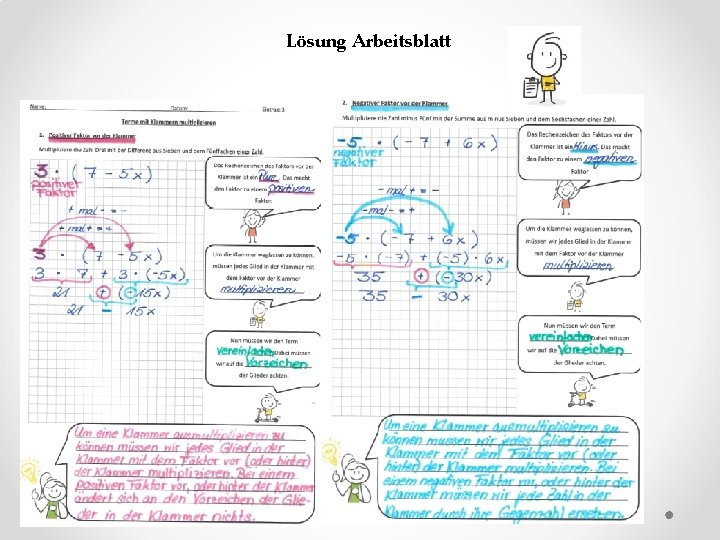 Lösung Arbeitsblatt
Name: Datum:
Terme mit Klammern multiplizieren
1. Positiver Faktor vor der Klammer
Multipliziere die Zahl Drei mit der Differenz aus Sieben und dem Fünffachen einer Zahl.
3 · ( 7 - 5x )
positiver
Faktor
Das Rechenzeichen des Faktors vor der
Klammer ist ein Plus. Das macht
den Faktor zu einem positiven
Faktor.
+ mal - = -
+ mal + = +
3 · ( 7 - 5x )
3 · 7 + 3 · (-5x)
21 + (-15x)
21 - 15x
Um die Klammer weglassen zu können,
müssen wir jedes Glied in der Klammer mit
dem Faktor vor der Klammer
multiplizieren
Nun müssen wir den Term
vereinfachen. Dabei müssen
wir auf die Vorzeichen
der Glieder achten.
Um eine Klammer ausmultiplizieren zu
können müssen wir jedes Glied in der
Klammer mit dem Faktor vor (oder hinter)
der Klammer multiplizieren. Bei einem
positiven Faktor vor, oder hinter der Klammer
ändert sich an den Vorzeichen der Glie-
der in der Klammer nichts.
2. Negativer Faktor vor der Klammer
Multipliziere die Zahl minus Fünf mit der Summe aus minus Sieben und dem Sechsfachen einer Zahl.
-5 · ( -7 + 6x )
negativer
Faktor
Das Rechenzeichen des Faktors vor der
Klammer ist ein Minus. Das macht
den Faktor zu einem negativen
Faktor.
- mal + = -
- mal - = +
-5 · ( -7 + 6x )
-5 · (-7) + (-5) · 6x
35 + (-30x)
35 - 30x
Um die Klammer weglassen zu können,
müssen wir jedes Glied in der Klammer
mit dem Faktor vor der Klammer
multiplizieren
Nun müssen wir den Term
vereinfachen. Dabei müssen
wir auf die Vorzeichen
der Glieder achten.
Um eine Klammer ausmultiplizieren zu
können müssen wir jedes Glied in der
Klammer mit dem Faktor vor (oder
hinter) der Klammer multiplizieren. Bei
einem negativen Faktor vor, oder hinter der
Klammer müssen wir jede Zahl in der
Klammer durch ihre Gegenzahl ersetzen.